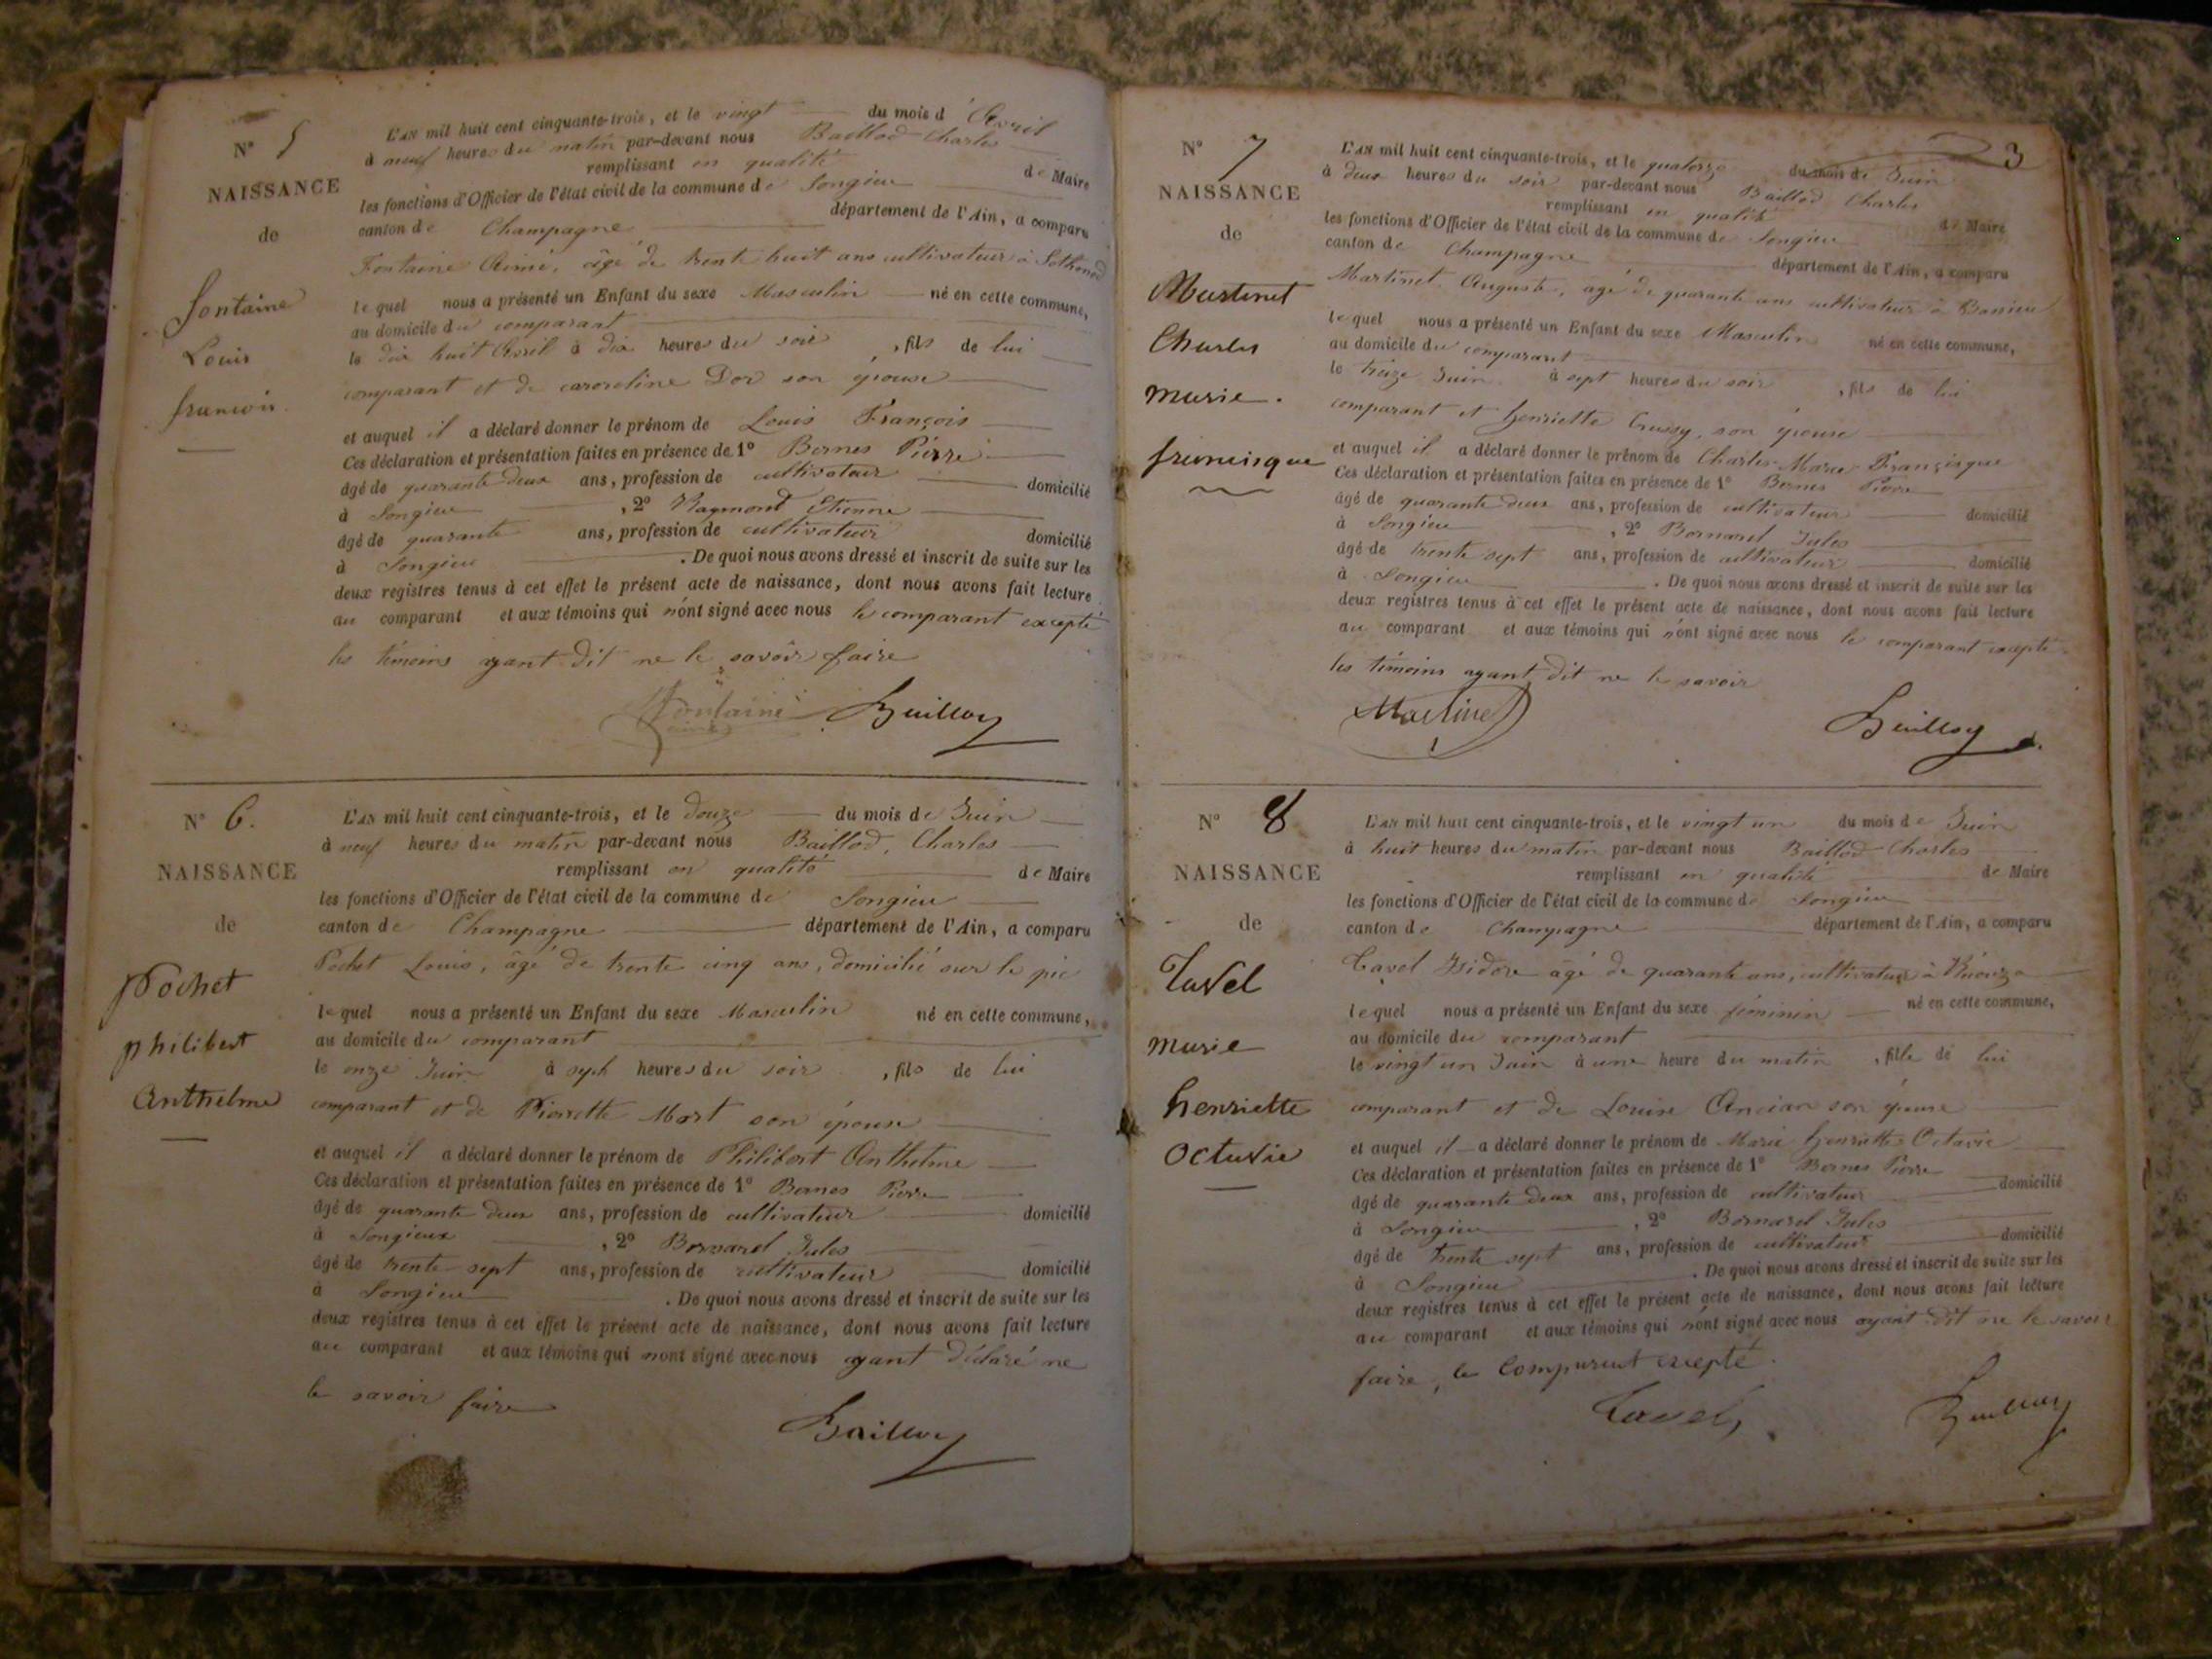 N° 5
NAISSANCE
de
fontaine
Louis
francois.
L'AN mil huit cent cinquante-trois, et le vingt du mois d'Avril
à neuf heures du matin par-devant nous Baillod Charles
remplissant en qualité de Maire
les fonctions d'Officier de l'état civil de la commune de Songieu
canton de Champagne département de l'Ain, a comparu
Fontaine Aimé, âgé de trente huit ans cultivateur à Sothonod
lequel nous a présenté un Enfant du sexe Masculin né en cette commune,
au domicile du comparant
le dix huit Avril à dix heures du soir, fils de lui
comparant et de caroroline Dor son épouse
et auquel il a déclaré donner le prénom de Louis François
Ces déclaration et présentation faites en présence de 1° Bornes Pierre
âgé de quarante deux ans, profession de cultivateur domicilié
à Songieu, 2° Raymond Etienne
âgé de quarante ans, profession de cultivateur domicilié
à Songieu. De quoi nous avons dressé et inscrit de suite sur les
deux registres tenus à cet effet le présent acte de naissance, dont nous avons fait lecture
au comparant et aux témoins qui n'ont signé avec nous le comparant excepté
les témoins ayant dit ne le savoir faire
Fontaine Baillod
N° 6.
NAISSANCE
de
Pochet
philibert
Anthelme
L'AN mil huit cent cinquante-trois, et le douze du mois de Juin
à neuf heures du matin par-devant nous Baillod, Charles
remplissant en qualité de Maire
les fonctions d'Officier de l'état civil de la commune de Songieu
canton de Champagne département de l'Ain, a comparu
Pochet Louis, âgé de trente cinq ans, domicilié sur le pic
lequel nous a présenté un Enfant du sexe Masculin né en cette commune,
au domicile du comparant
le onze Juin à sept heures du soir, fils de lui
comparant et de Pierrette Mort son épouse
et auquel il a déclaré donner le prénom de Philibert Anthelme
Ces déclaration et présentation faites en présence de 1° Bornes Pierre
âgé de quarante deux ans, profession de cultivateur domicilié
à Songieux, 2° Bornarel Jules
âgé de trente sept ans, profession de cultivateur domicilié
à Songieu. De quoi nous avons dressé et inscrit de suite sur les
deux registres tenus à cet effet le présent acte de naissance, dont nous avons fait lecture
au comparant et aux témoins qui n'ont signé avec nous ayant déclaré ne
le savoir faire
Baillod
3
N° 7
NAISSANCE
de
Martinet
Charles
marie.
francisque
L'AN mil huit cent cinquante-trois, et le quatorze du mois de Juin
à deux heures du soir par-devant nous Baillod Charles
remplissant en qualité de Maire
les fonctions d'Officier de l'état civil de la commune de Songieu
canton de Champagne département de l'Ain, a comparu
Martinet Auguste, âgé de quarante ans cultivateur à
lequel nous a présenté un Enfant du sexe Masculin né en cette commune,
au domicile du comparant
le treize Juin à sept heures du soir, fils de lui
comparant et henriette Crussy, son épouse
et auquel il a déclaré donner le prénom de Charles Marie Françisque
Ces déclaration et présentation faites en présence de 1° Bornes Pierre
âgé de quarante deux ans, profession de cultivateur domicilié
à Songieu, 2° Bornarel Jules
âgé de trente sept ans, profession de cultivateur domicilié
à Songieu. De quoi nous avons dressé et inscrit de suite sur les
deux registres tenus à cet effet le présent acte de naissance, dont nous avons fait lecture
au comparant et aux témoins qui n'ont signé avec nous le comparant excepté
les témoins ayant dit ne le savoir
Martinet Baillod
N° 8
NAISSANCE
de
Tavel
marie
henriette
Octavie
L'AN mil huit cent cinquante-trois, et le vingt un du mois de Juin
à huit heures du matin par-devant nous Baillod Charles
remplissant en qualité de Maire
les fonctions d'Officier de l'état civil de la commune de Songieu
canton de Champagne département de l'Ain, a comparu
Tavel Isidore âgé de quarante ans, cultivateur à
lequel nous a présenté un Enfant du sexe féminin né en cette commune,
au domicile du comparant
le vingt un Juin à une heure du matin, fille de lui
comparant et de Louise Ancian son épouse
et auquel il a déclaré donner le prénom de Marie henriette Octavie
Ces déclaration et présentation faites en présence de 1° Bornes Pierre
âgé de quarante deux ans, profession de cultivateur domicilié
à Songieu, 2° Bornarel Jules
âgé de trente sept ans, profession de cultivateur domicilié
à Songieu. De quoi nous avons dressé et inscrit de suite sur les
deux registres tenus à cet effet le présent acte de naissance, dont nous avons fait lecture
au comparant et aux témoins qui n'ont signé avec nous ayant dit ne le savoir
faire, le Comparant excepté.
Tavel Baillod